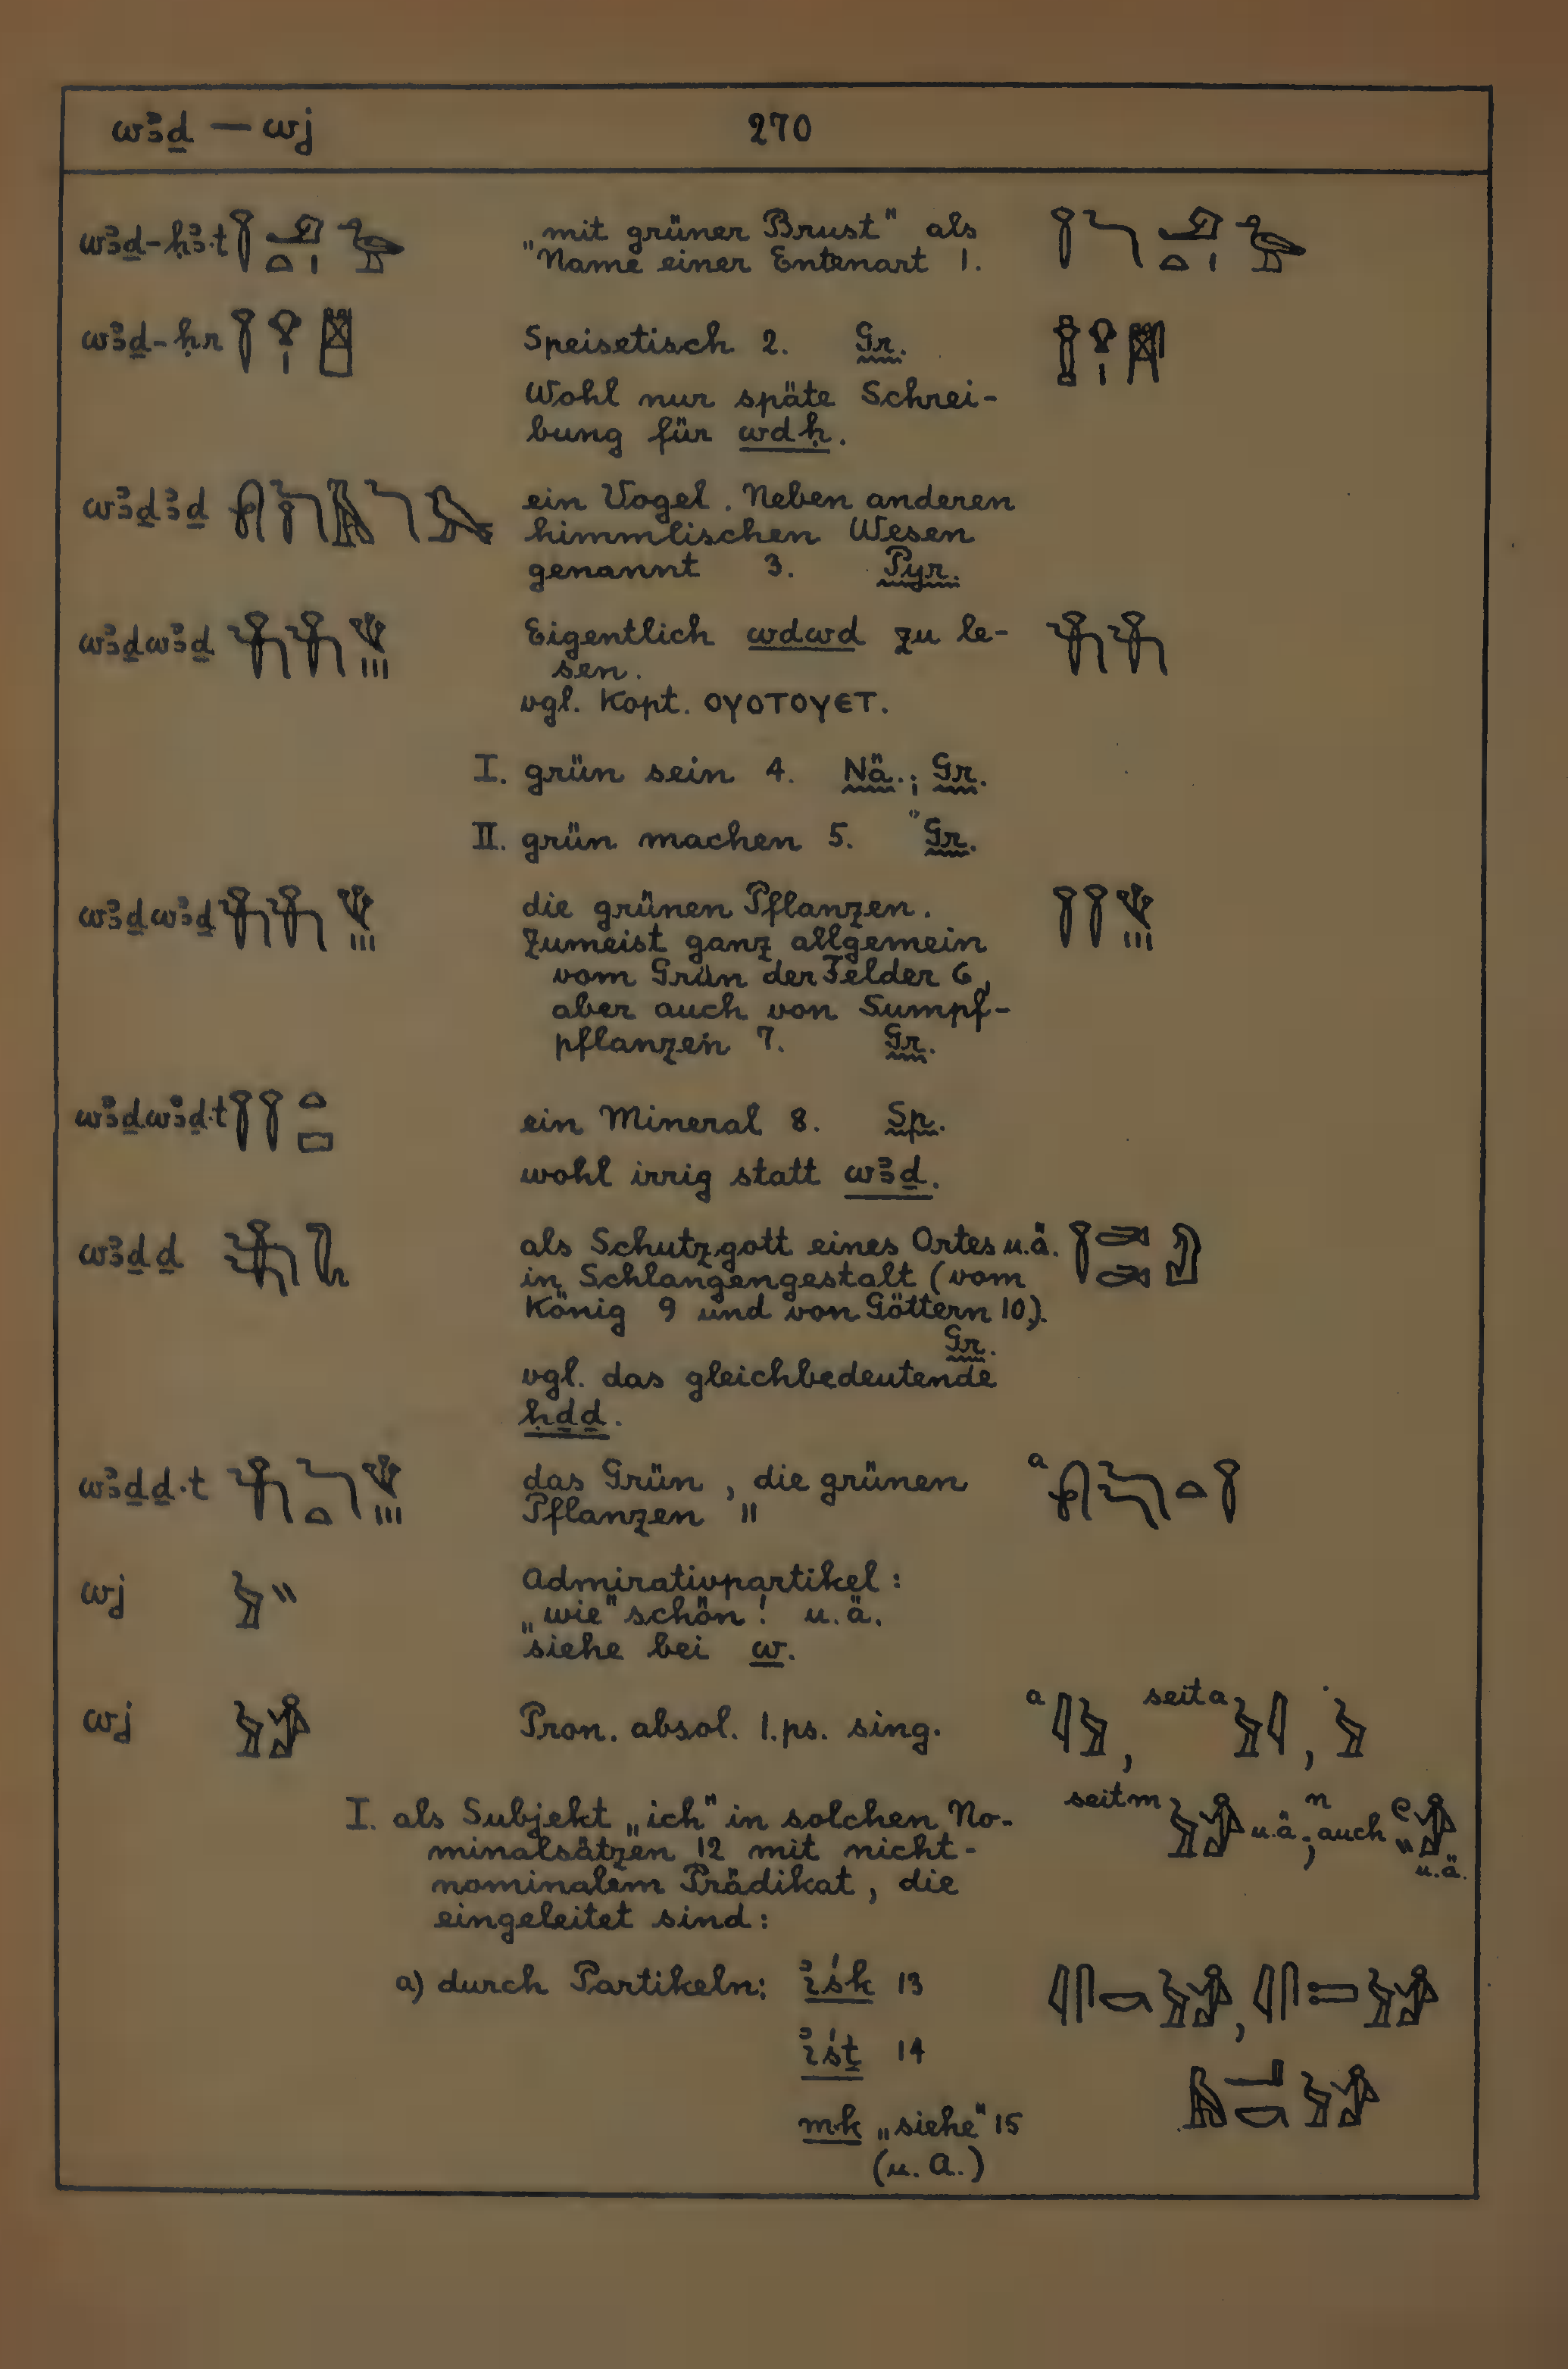 wꜣḏ — wj 270
wꜣḏ-ḥꜣ.t „mit grüner Brust" als
Name einer Entenart 1.
wꜣḏ-ḥr Speisetisch 2. Gr.
Wohl nur späte Schrei-
bung für wdḥ.
wꜣḏꜣḏ ein Vogel. Neben anderen
himmlischen Wesen
genannt 3. Pyr.
wꜣḏwꜣḏ Eigentlich wdwd zu le-
sen.
vgl. Kopt. ⲟⲩⲟⲧⲟⲩⲉⲧ.
I. grün sein 4. Nä.; Gr.
II. grün machen 5. Gr.
wꜣḏwꜣḏ die grünen Pflanzen.
Zumeist ganz allgemein
vom Grün der Felder 6,
aber auch von Sumpf-
pflanzen 7. Gr.
wꜣḏwꜣḏ.t ein Mineral 8. Sp.
wohl irrig statt wꜣḏ.
wꜣḏḏ als Schutzgott eines Ortes u.ä.
in Schlangengestalt (vom
König 9 und von Göttern 10).
Gr.
vgl. das gleichbedeutende
ḥḏḏ.
wꜣḏḏ.t das Grün, die grünen a
Pflanzen 11
wj Admirativpartikel:
„wie" schön! u.ä.
siehe bei w.
wj Pron. absol. 1.ps. sing. a , seit a ,
I. als Subjekt „ich" in solchen No- seit m u.ä.; n auch u.ä.
minalsätzen 12 mit nicht-
nominalem Prädikat, die
eingeleitet sind:
a) durch Partikeln: ꞽśk 13 ,
ꞽśṯ 14
m.k „siehe" 15
(u. A.)